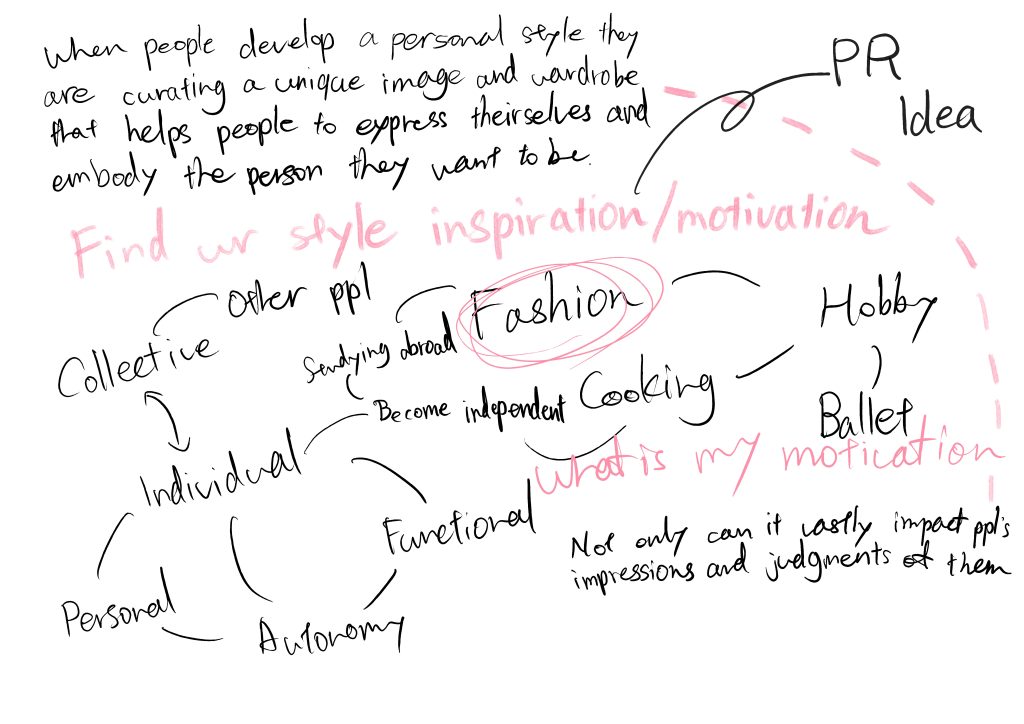 When people develop a personal style they
are curating a unique image and wardrobe
that helps people to express theirselves and
embody the person they want to be.
PR
Idea
Find ur style inspiration/motivation
Other ppl
Fashion
Hobby
Collective
Studying abroad
Become independent
Cooking
Ballet
Individual
what is my motication
Functional
Not only can it vastly impact ppl's
impressions and judgments of them
Personal
Autonomy